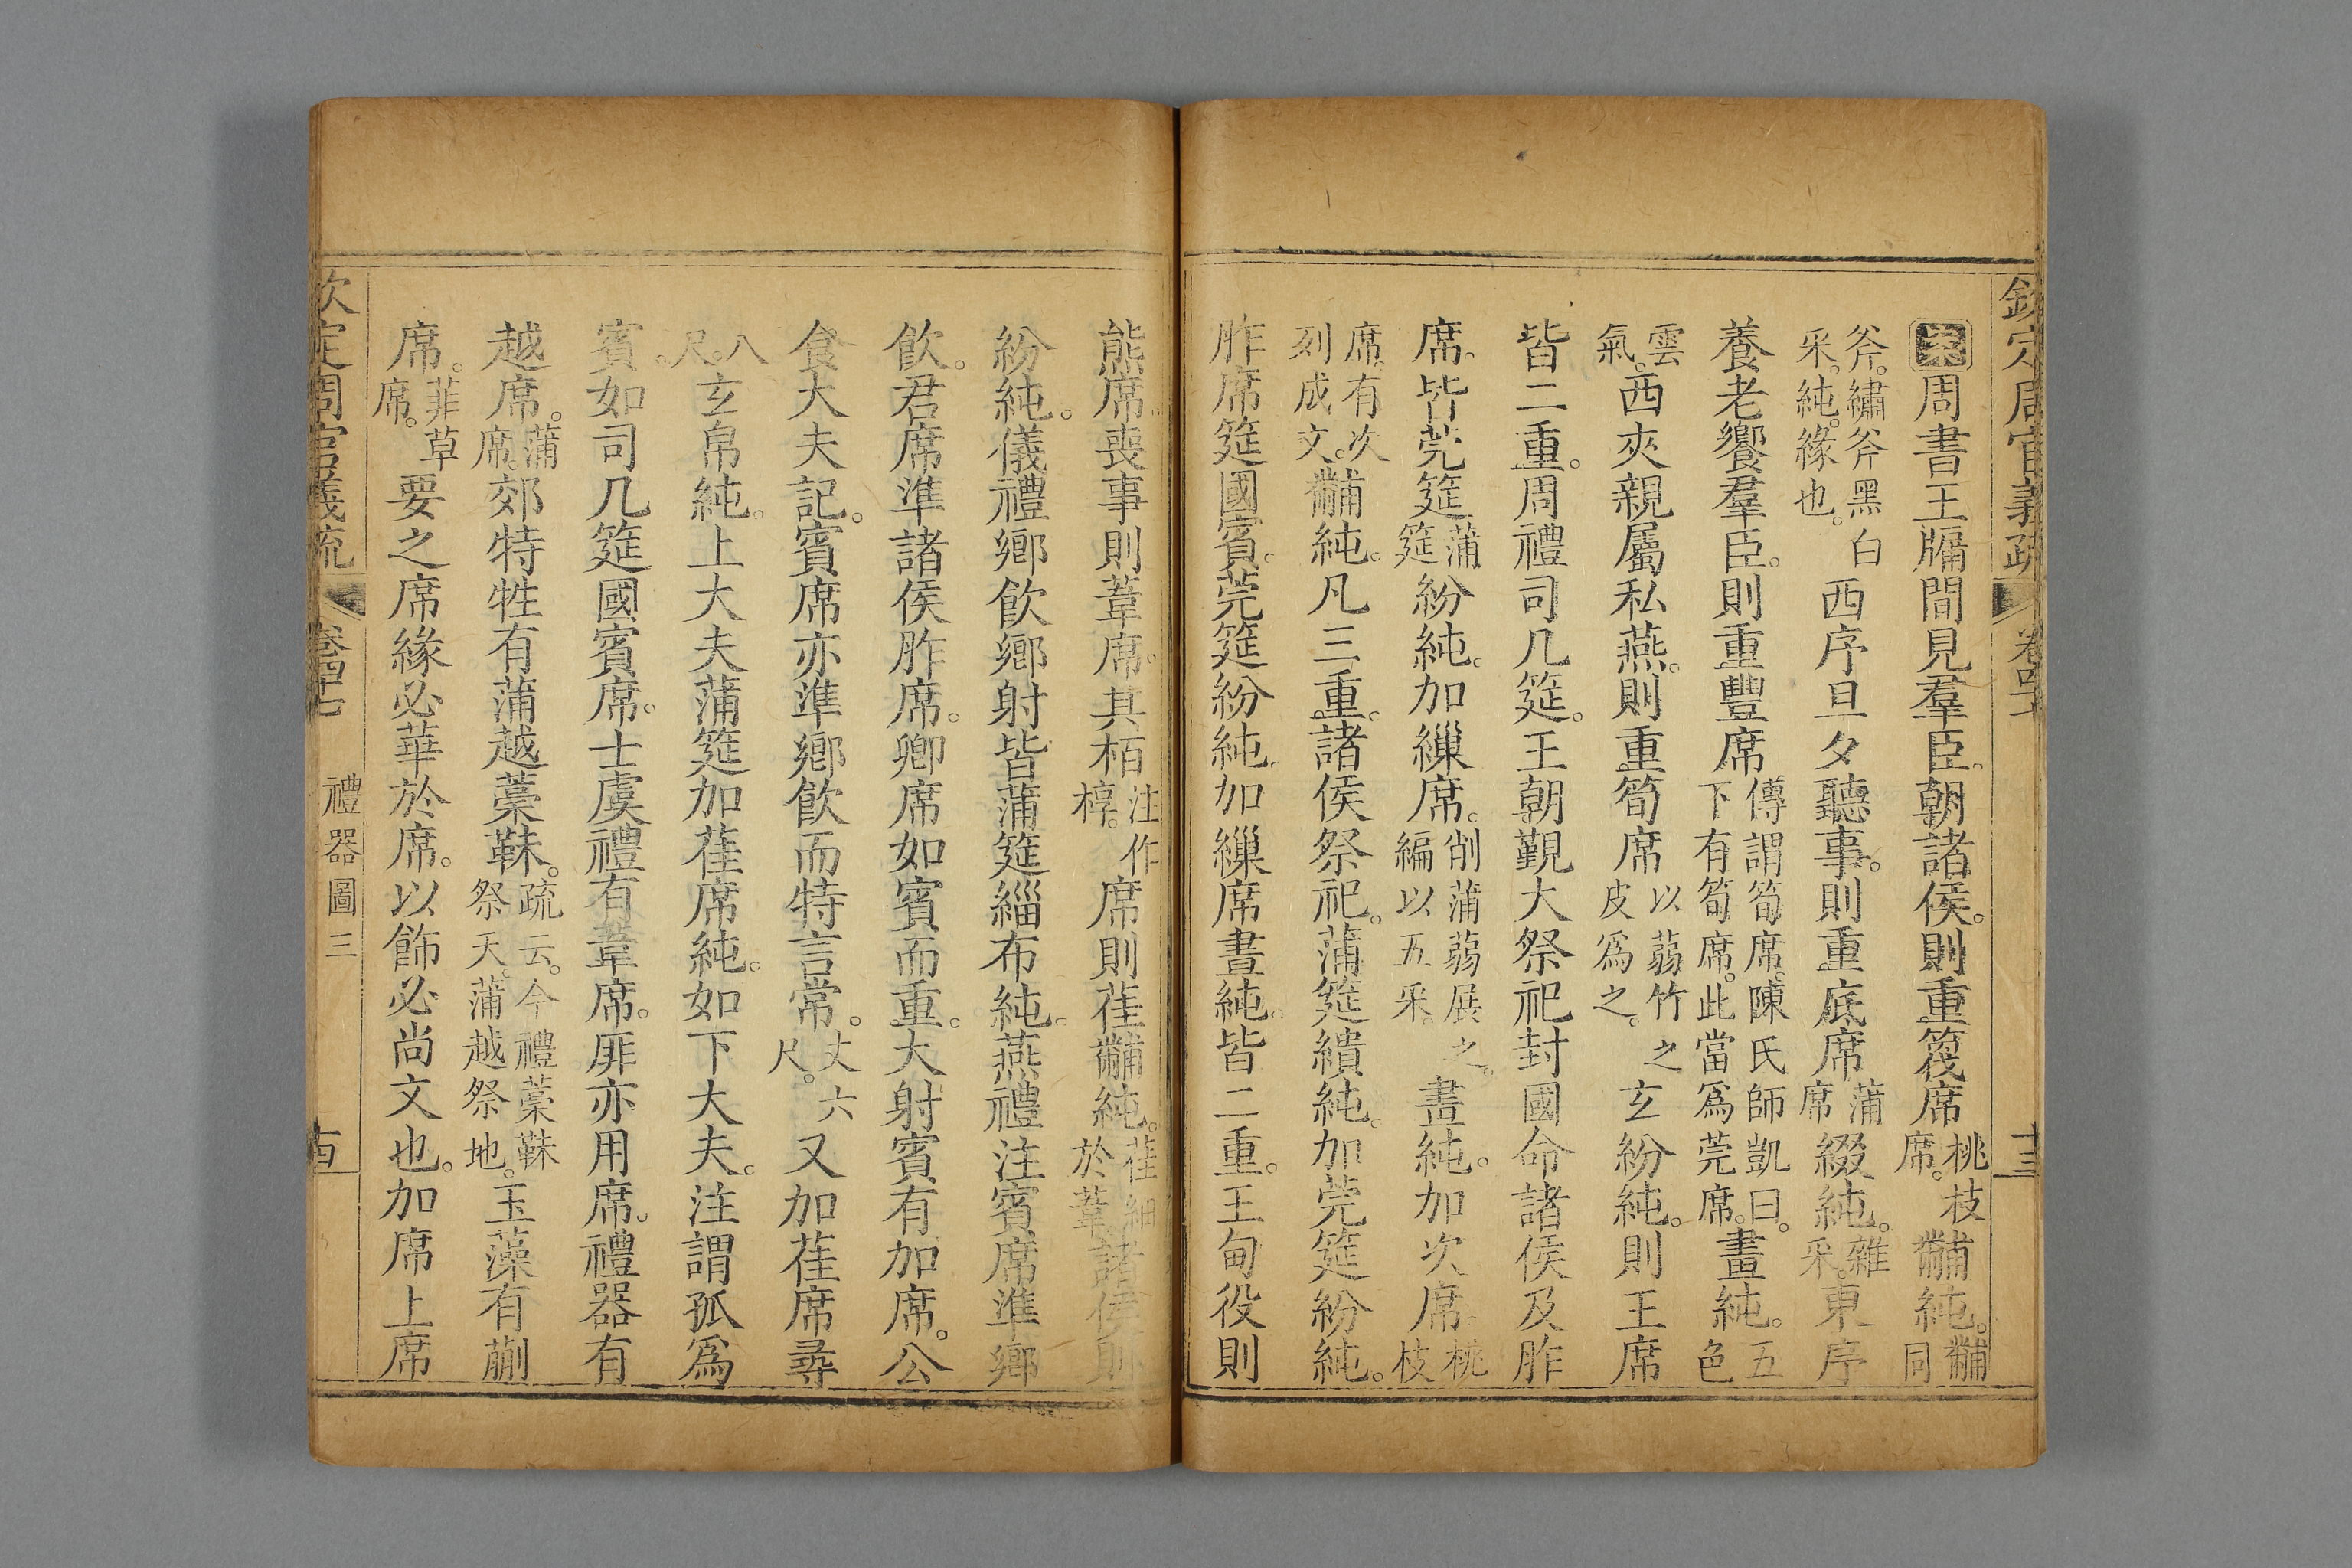 欽定周官義疏 卷四十 十三
案周書王牖間見羣臣。朝諸侯。則重筏席桃枝席。黼純。黼同
斧。繡斧黑白采。純。緣也。西序旦夕聽事。則重底席蒲席綴純。雜采。東序
養老饗羣臣。則重豐席傳謂筍席。陳氏師凱曰。下有筍席。此當爲莞席。畫純。五色
雲氣。西夾親屬私燕。則重筍席以蒻竹之皮爲之。玄紛純。則王席
皆二重。周禮司几筵。王朝覲大祭祀封國命諸侯及胙
席。皆莞筵蒲筵紛純。加繅席。削蒲蒻展之。編以五采。畫純。加次席。桃枝
席。有次刻成文。黼純。凡三重。諸侯祭祀。蒲筵繢純。加莞筵紛純。
胙席筵國賓。莞筵紛純。加繅席畫純。皆二重。王甸役則
熊席。喪事則葦席。其柏注作椁。席則萑黼純。萑細於葦。諸侯則
紛純。儀禮鄉飲鄉射皆蒲筵緇布純。燕禮注賓席準鄉
飲。君席準諸侯胙席。卿席如賓而重。大射賓有加席。公
食大夫記。賓席亦準鄉飲而特言常。丈六尺。又加萑席尋
八尺。玄帛純。上大夫蒲筵加萑席純。如下大夫。注謂孤爲
賓。如司几筵國賓席。士虞禮有葦席。厞亦用席。禮器有
越席。蒲席。郊特牲有蒲越藁鞂。疏云。今禮藁鞂祭天。蒲越祭地。玉藻有蒯
席。菲草席。要之席緣必華於席。以飾必尚文也。加席上席
欽定周官義疏 卷四十七 禮器圖三 十四